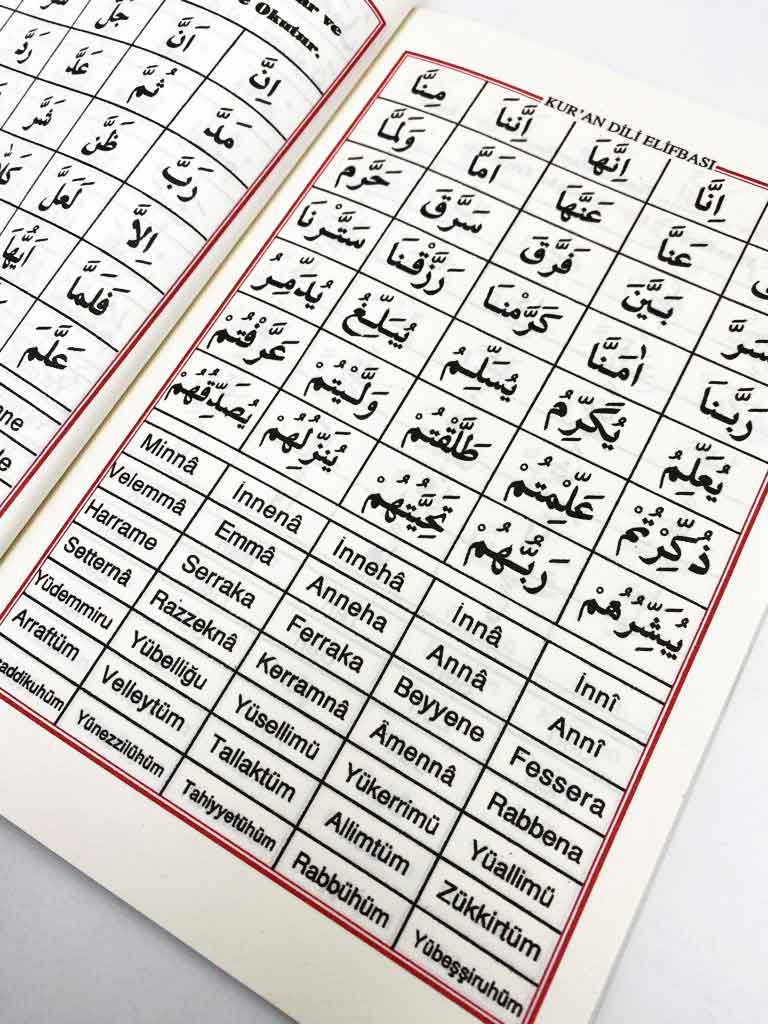 ve
Okutur.
اِنَّ اَنَّ جَلَّ
مَدَّ ثُمَّ عَدَّ رَدَّ
رَبَّ ظَنَّ شَرَّ
اِلَّا لَعَلَّ كَلَّا
فَلَمَّا اَيُّهَا
عَلَّمَ
KUR'AN DİLİ ELİFBASI
اِنَّا اِنَّهَا اِنَّنَا مِنَّا
عَنَّا عَنَّهَا اَمَّا وَلَمَّا
بَيَّنَ فَرَّقَ سَرَّقَ حَرَّمَ
رَبَّنَا اٰمَنَّا كَرَّمْنَا رَزَّقْنَا سَتَّرْنَا
يُعَلِّمُ يُكَرِّمُ يُسَلِّمُ يُبَلِّغُ يُدَمِّرُ
ذُكِّرْتُمْ عَلِّمْتُمْ طَلَّقْتُمْ وَلَّيْتُمْ عَرَّفْتُمْ
يُبَشِّرُهُمْ رَبُّهُمْ تَحِيَّتُهُمْ يُنَزِّلُهُمْ يُصَدِّقُهُمْ
Minnâ İnnenâ İnnehâ İnnâ İnnî
Velemmâ Emmâ Anneha Annâ Annî
Harrame Serraka Ferraka Beyyene Fessera
Setternâ Razzeknâ Kerramnâ Âmennâ Rabbena
Yüdemmiru Yübelliğu Yüsellimü Yükerrimü Yüallimü
Arraftüm Velleytüm Tallaktüm Allimtüm Zükkirtüm
addikuhüm Yünezzilühüm Tahiyyetühüm Rabbühüm Yübeşşiruhüm